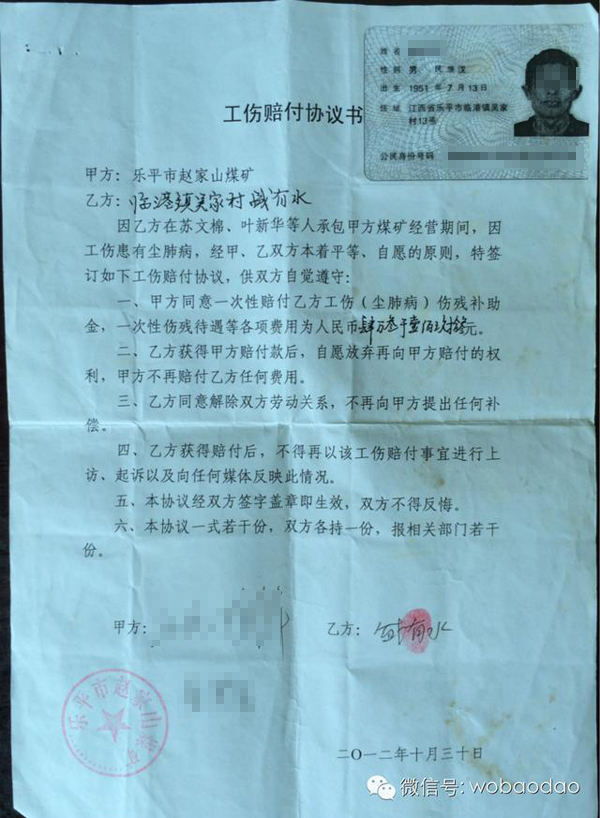 姓名
性别 男 民族汉
出生 1951年7月13日
住址 江西省乐平市临港镇吴家
村13号
公民身份号码
工伤赔付协议书
甲方：乐平市赵家山煤矿
乙方：临港镇吴家村 有水
因乙方在苏文棉、叶新华等人承包甲方煤矿经营期间，因
工伤患有尘肺病，经甲、乙双方本着平等、自愿的原则，特签
订如下工伤赔付协议，供双方自觉遵守：
一、甲方同意一次性赔付乙方工伤（尘肺病）伤残补助
金，一次性伤残待遇等各项费用为人民币肆万叁仟壹佰玖拾元。
二、乙方获得甲方赔付款后，自愿放弃再向甲方赔付的权
利，甲方不再赔付乙方任何费用。
三、乙方同意解除双方劳动关系，不再向甲方提出任何补
偿。
四、乙方获得赔付后，不得再以该工伤赔付事宜进行上
访、起诉以及向任何媒体反映此情况。
五、本协议经双方签字盖章即生效，双方不得反悔。
六、本协议一式若干份，双方各持一份，报相关部门若干
份。
甲方：
乙方： 有水
乐平市赵家山煤矿
二〇一二年十月三十日
微信号: wobaodao